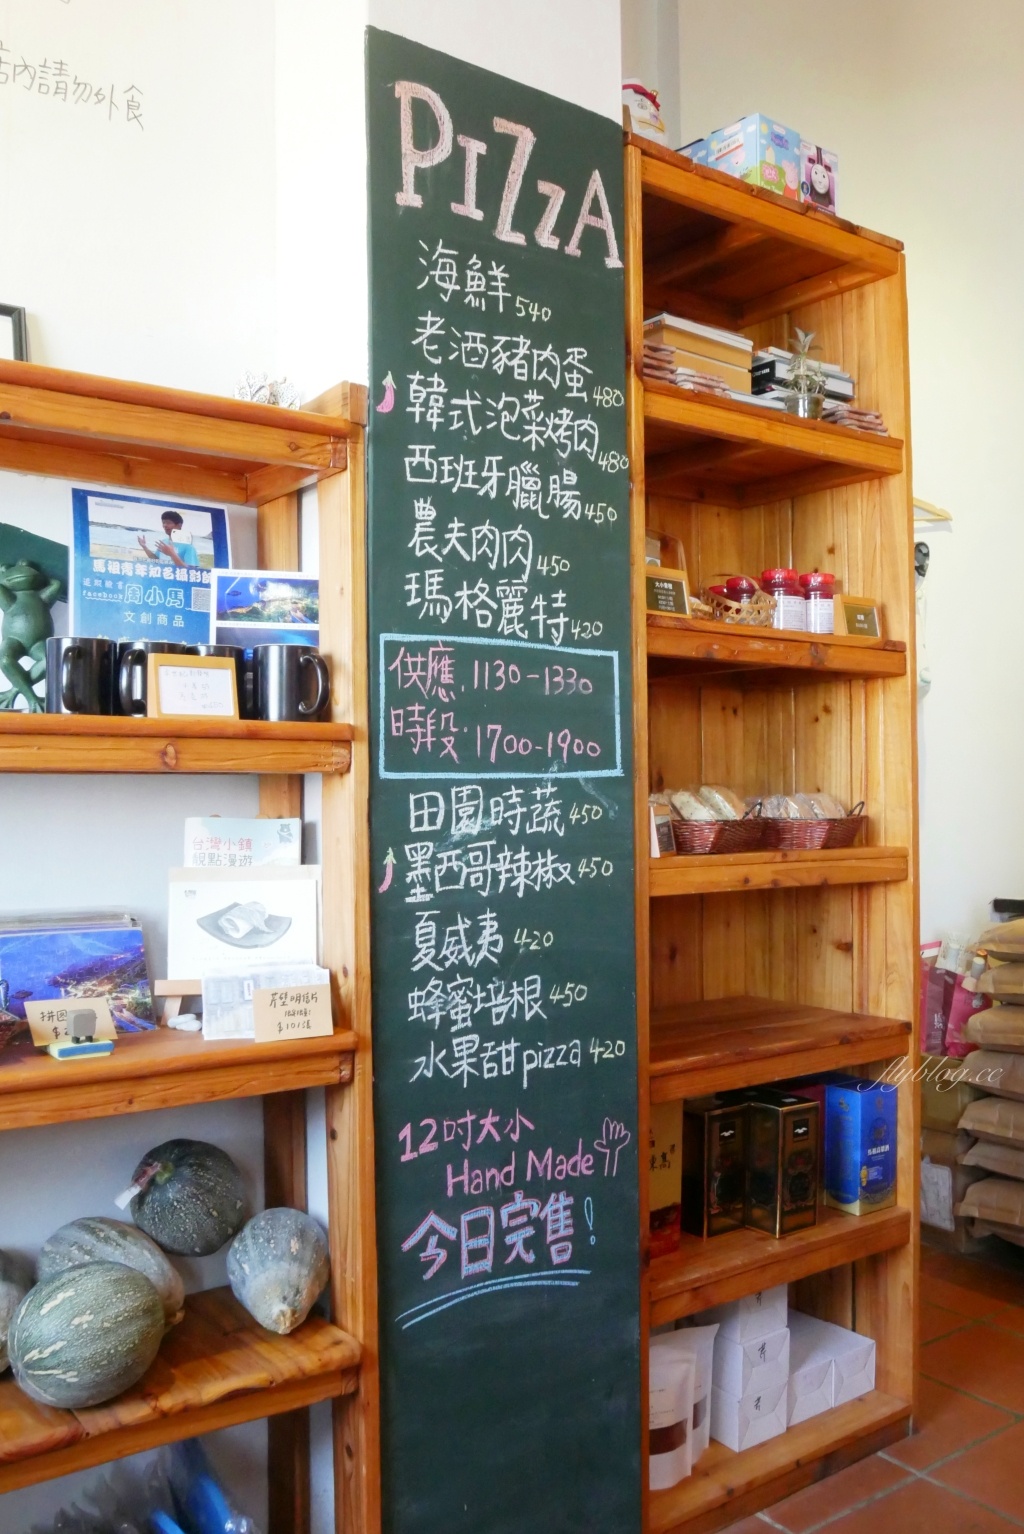 店內請勿外食
PIZZA
海鮮 540
老酒豬肉蛋 480
韓式泡菜烤肉 480
西班牙臘腸 450
農夫肉肉 450
瑪格麗特 420
供應 1130-1330
時段 1700-1900
田園時蔬 450
墨西哥辣椒 450
夏威夷 420
蜂蜜培根 450
水果甜pizza 420
12吋大小
Hand Made
今日完售!
馬祖青年知名攝影師
facebook 周小馬
文創商品
台灣小鎮
視點漫遊
芹壁明信片
拼圖
flyblog.cc